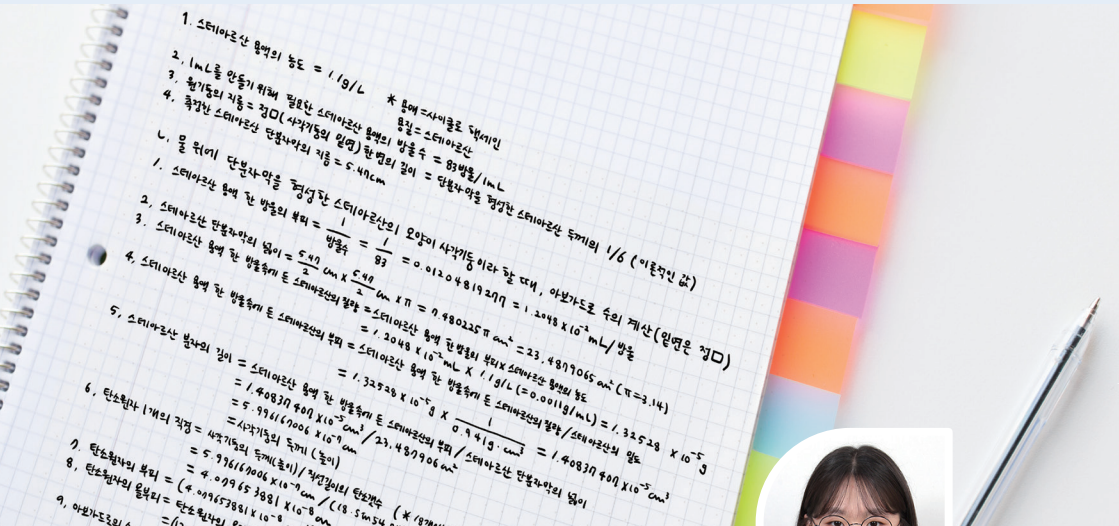 1. 스테아르산 용액의 농도 = 1.1g/L
* 용매=사이클로 헥세인
용질=스테아르산
2. 1mL를 만들기 위해 필요한 스테아르산 용액의 방울수 = 83방울/1mL
3. 원기둥의 지름 = 정□(사각기둥의 밑면) 한변의 길이 = 단분자막을 형성한 스테아르산 두께의 1/6 (이론적인 값)
4. 측정한 스테아르산 단분자막의 지름 = 5.47cm
ㄴ. 물 위에 단분자막을 형성한 스테아르산의 모양이 사각기둥이라 할 때, 아보가드로 수의 계산(밑면은 정□)
1. 스테아르산 용액 한 방울의 부피 = 1/방울수 = 1/83 = 0.01204819277 = 1.2048 x 10⁻² mL/방울
2. 스테아르산 단분자막의 넓이 = 5.47/2 cm x 5.47/2 cm x π = 7.480225π cm² = 23.4879065 cm² (π=3.14)
3. 스테아르산 용액 한 방울속에 든 스테아르산의 질량 = 스테아르산 용액 한방울의 부피 x 스테아르산 용액의 농도
= 1.2048 x 10⁻² mL x 1.1g/L (=0.0011g/mL) = 1.32528 x 10⁻⁵ g
4. 스테아르산 용액 한 방울속에 든 스테아르산의 부피 = 스테아르산 용액 한 방울속에 든 스테아르산의 질량/스테아르산의 밀도
= 1.32528 x 10⁻⁵ g x 1/0.941g·cm³ = 1.40837407 x 10⁻⁵ cm³
5. 스테아르산 분자의 길이 = 스테아르산 용액 한 방울속에 든 스테아르산의 부피/스테아르산 단분자막의 넓이
= 1.40837407 x 10⁻⁵ cm³ / 23.487906 cm²
= 5.996167006 x 10⁻⁷ cm
= 사각기둥의 두께 (높이)
6. 탄소원자 1개의 직경 = 사각기둥의 두께(높이) / 직선길이의 탄소갯수
= 5.996167006 x 10⁻⁷ cm / (18.5in54
= 4.079653881 x 10⁻⁸ cm
7. 탄소원자의 부피 = (4.079653881 x 10⁻⁸
8. 탄소원자의 몰부피 = 탄소원자의
9. 아보가드로의